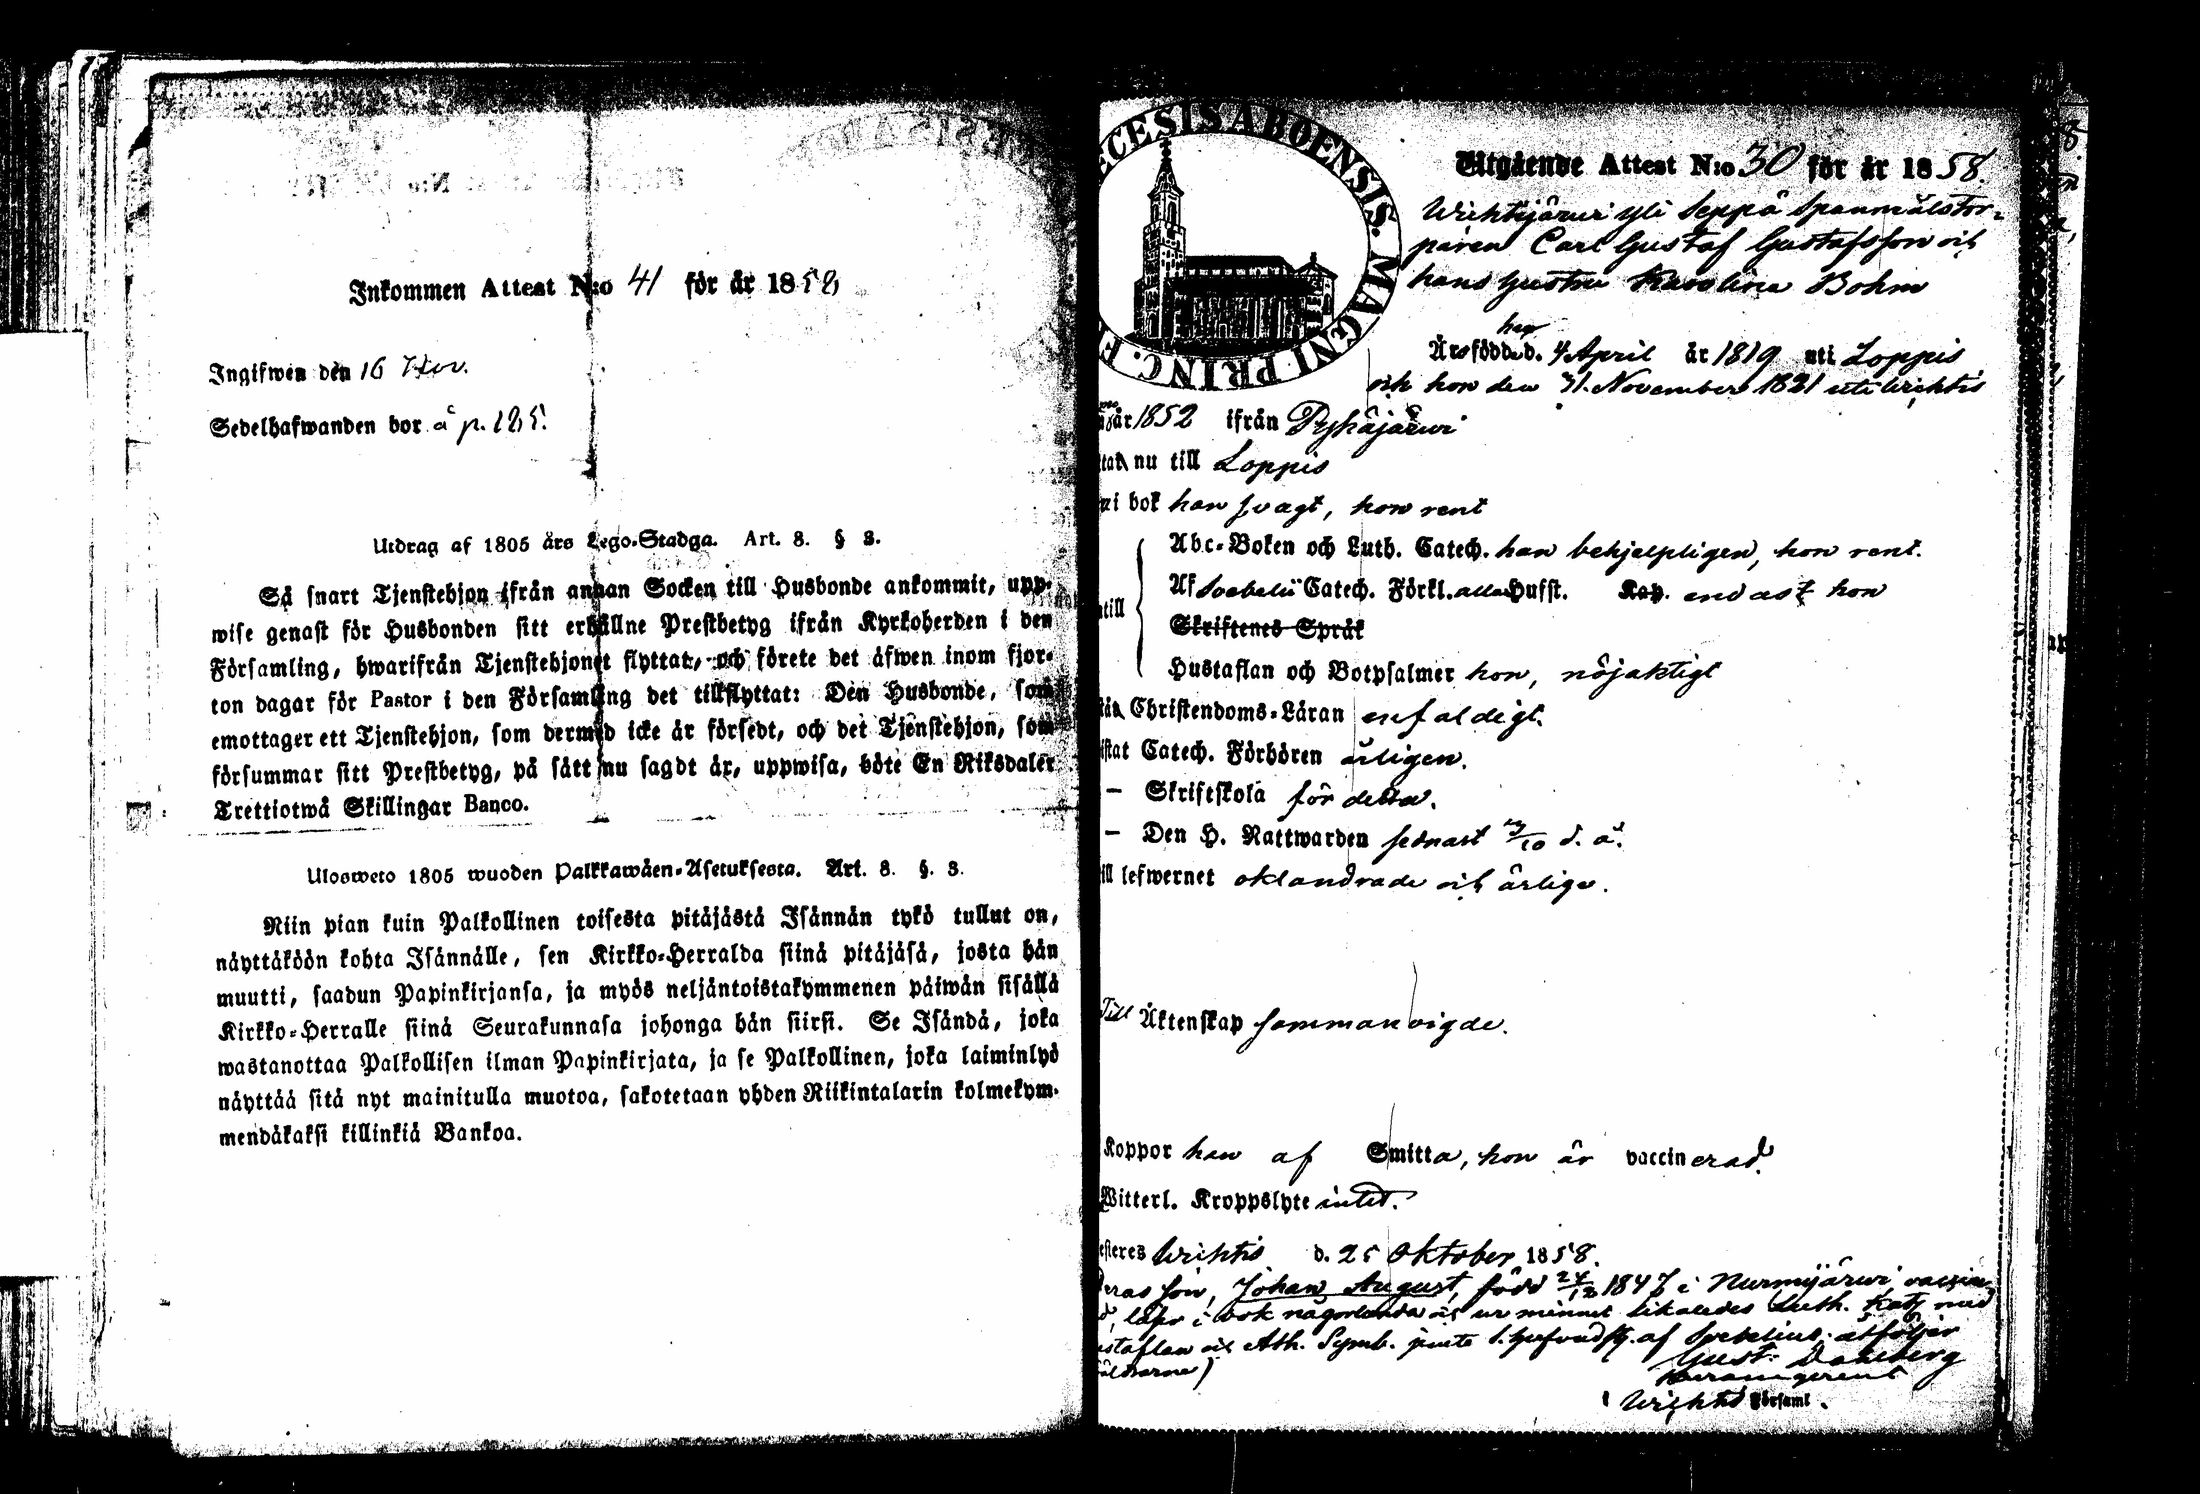 Inkommen Attest N:o 41 för år 1858
Ingifwen den 16 Nov.
Sedelhafwanden bor å p. 185.
Utdrag af 1805 års Lego-Stadga. Art. 8. § 3.
Så snart Tjenstehjon ifrån annan Socken till Husbonde ankommit, upp-
wise genast för Husbonden sitt erhållne Prestbetyg ifrån Kyrkoherden i den
Församling, hwarifrån Tjenstehjonet flyttat, och förete det äfwen inom fjor-
ton dagar för Pastor i den Församling det tillflyttat: Den Husbonde, som
emottager ett Tjenstehjon, som dermed icke är försedt, och det Tjenstehjon, som
försummar sitt Prestbetyg, på sätt nu sagdt är, uppwisa, böte En Riksdaler
Trettiotwå Skillingar Banco.
Ulosweto 1805 wuoden Palkkawäen-Asetuksesta. Art. 8. §. 3.
Niin pian kuin Palkollinen toisesta pitäjästä Isännän tykö tullut on,
näyttäköön kohta Isännälle, sen Kirkko-Herralda siinä pitäjäsä, josta hän
muutti, saadun Papinkirjansa, ja myös neljäntoistakymmenen päiwän sisällä
Kirkko-Herralle siinä Seurakunnasa johonga hän siirsi. Se Isändä, joka
wastanottaa Palkollisen ilman Papinkirjata, ja se Palkollinen, joka laiminlyö
näyttää sitä nyt mainitulla muotoa, sakotetaan yhden Riikintalarin kolmekym-
mendäkaksi killinkiä Bankoa.
ECESIS ABOENSIS. MAGNI PRINC. F
Utgående Attest N:o 30 för år 1858.
Wichtijärvi yli Seppä Spanmålstor-
paren Carl Gustaf Gustafsson och
hans hustru Karolina Bohm
han
Är födde d. 4 April år 1819 uti Loppis
och hon den 31. November 1821 uti Wichtis
år 1852 ifrån Pyhäjärwi
nu till Loppis
i bok han svagt, hon rent
Abc-Boken och Luth. Catech. han behjelpligen, hon rent.
Af Svebelii Catech. Förkl. alla Hufst. Kap. endast hon
till
Skriftenes Språk
Hustaflan och Botpsalmer hon, nöjaktigt
Christendoms-Läran enfaldigt.
istat Catech. Förhören årligen.
— Skriftskola för detta.
— Den H. Nattwarden sednast d. å.
ill lefwernet oklandrade och ärliga.
Till Äktenskap sammanvigde.
Koppor han af Smitta, hon är vaccinerad.
Witterl. Kroppslyte intet.
esteres Wichtis d. 25 Oktober 1858.
eras son, Johan August, född 24/12 1847 i Nurmijärwi, vaccine-
läser i bok nagorlunda och ur minnet likaledes Luth. Kat. med
staflan och Ath. Symb. jemte 1. hufvudst. af Svebelius. åtföljer
äldrarne)
Gust. Dahlberg
i Wichtis Församl.